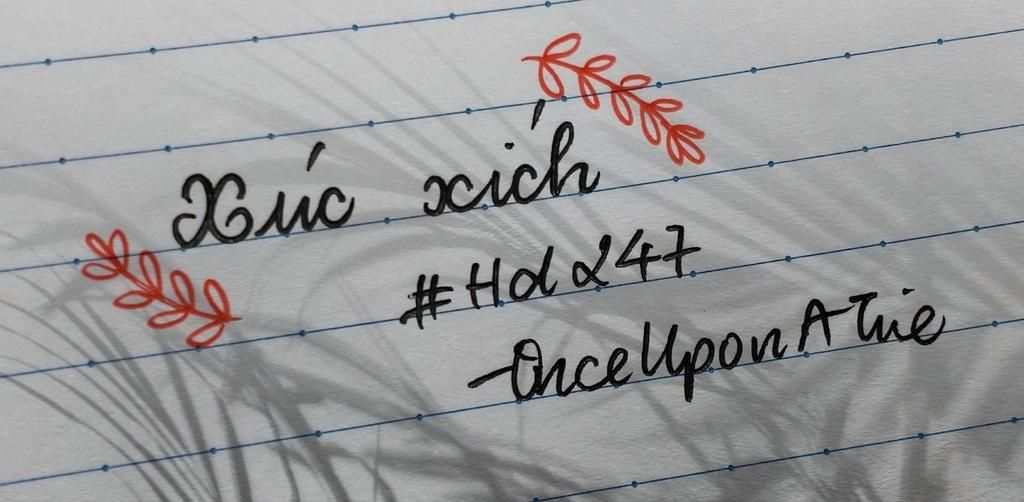 Xúc xích
#Hd247
-OnceUponATrie